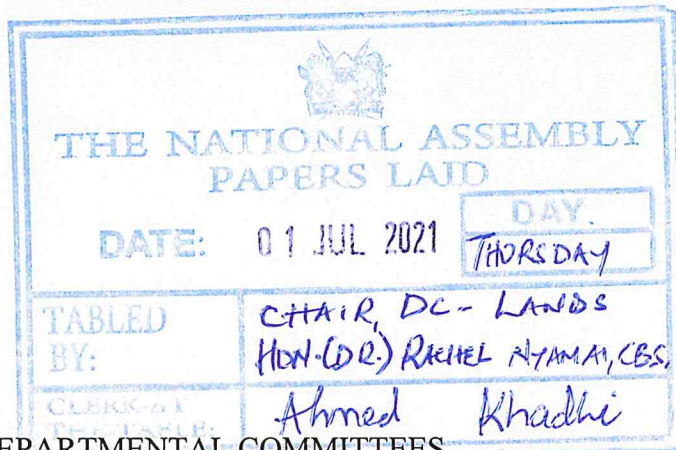 THE NATIONAL ASSEMBLY
PAPERS LAID
DATE: 01 JUL 2021
DAY.
THURSDAY
TABLED BY:
CHAIR, DC - LANDS
HON. (DR.) RACHEL NYAMAI, CBS,
CLERK-AT THE-TABLE:
Ahmed Khadhi
DEPARTMENTAL COMMITTEES